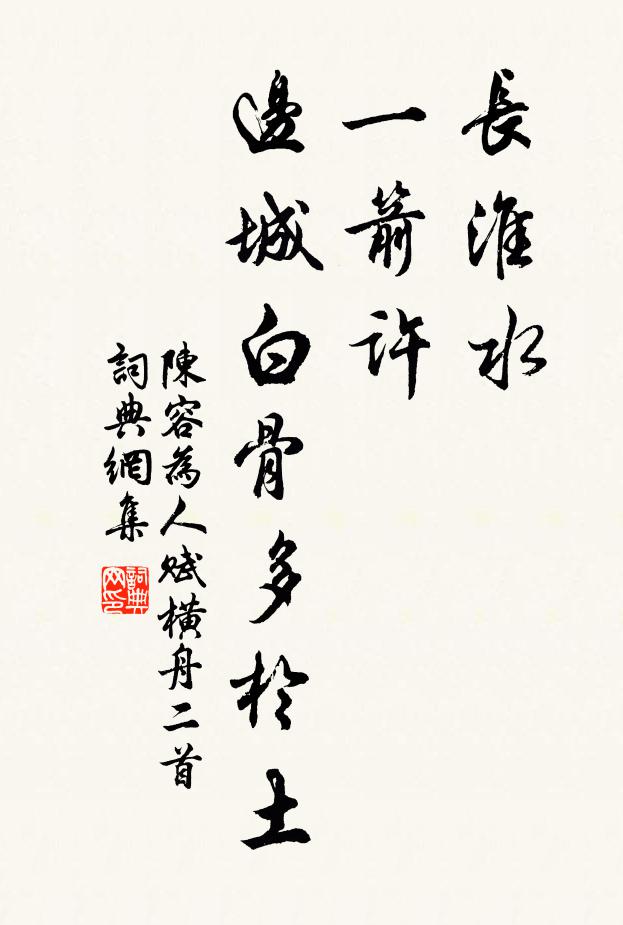 長淮水
一箭許
邊城白骨多於土
陳容為人賦橫舟二首
詞典網集
詞典網印